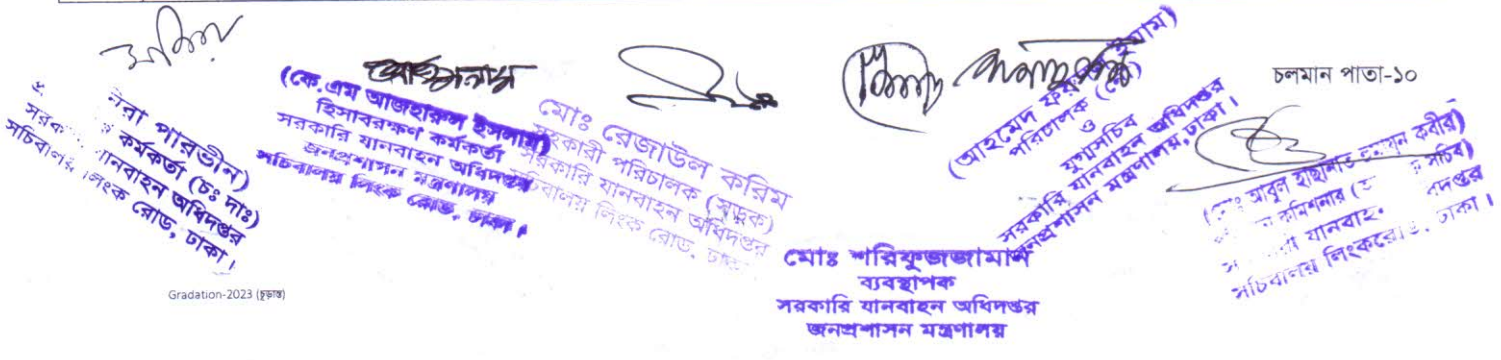 চলমান পাতা-১০
নিরা পারভীন)
কর্মকর্তা (চঃ দাঃ)
যানবাহন অধিদপ্তর
সচিবালয় লিংক রোড, ঢাকা।
(কে.এম আজহারুল ইসলাম)
হিসাবরক্ষণ কর্মকর্তা
সরকারি যানবাহন অধিদপ্তর
জনপ্রশাসন মন্ত্রণালয়
সচিবালয় লিংক রোড, ঢাকা।
মোঃ রেজাউল করিম
সহকারী পরিচালক (সড়ক)
সরকারি যানবাহন অধিদপ্তর
সচিবালয় লিংক রোড, ঢাকা
মোঃ শরিফুজ্জামান
ব্যবস্থাপক
সরকারি যানবাহন অধিদপ্তর
জনপ্রশাসন মন্ত্রণালয়
(আহমেদ
পরিচালক
ও
যুগ্মসচিব
সরকারি যানবাহন অধিদপ্তর
জনপ্রশাসন মন্ত্রণালয়, ঢাকা।
আবুল হাছানাত হুমায়ুন কবীর)
কমিশনার সচিব)
যানবাহন
সচিবালয় লিংকরোড, ঢাকা।
Gradation-2023 (চূড়ান্ত)